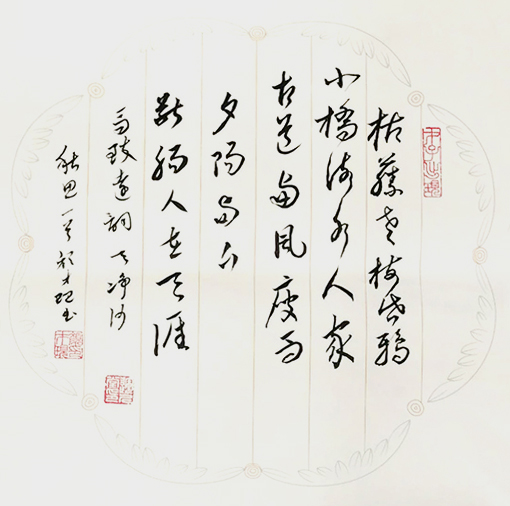 枯藤老树昏鸦
小橋流水人家
古道西风瘦马
夕阳西下
断肠人在天涯
马致远词天净沙
秋思一首 才 书